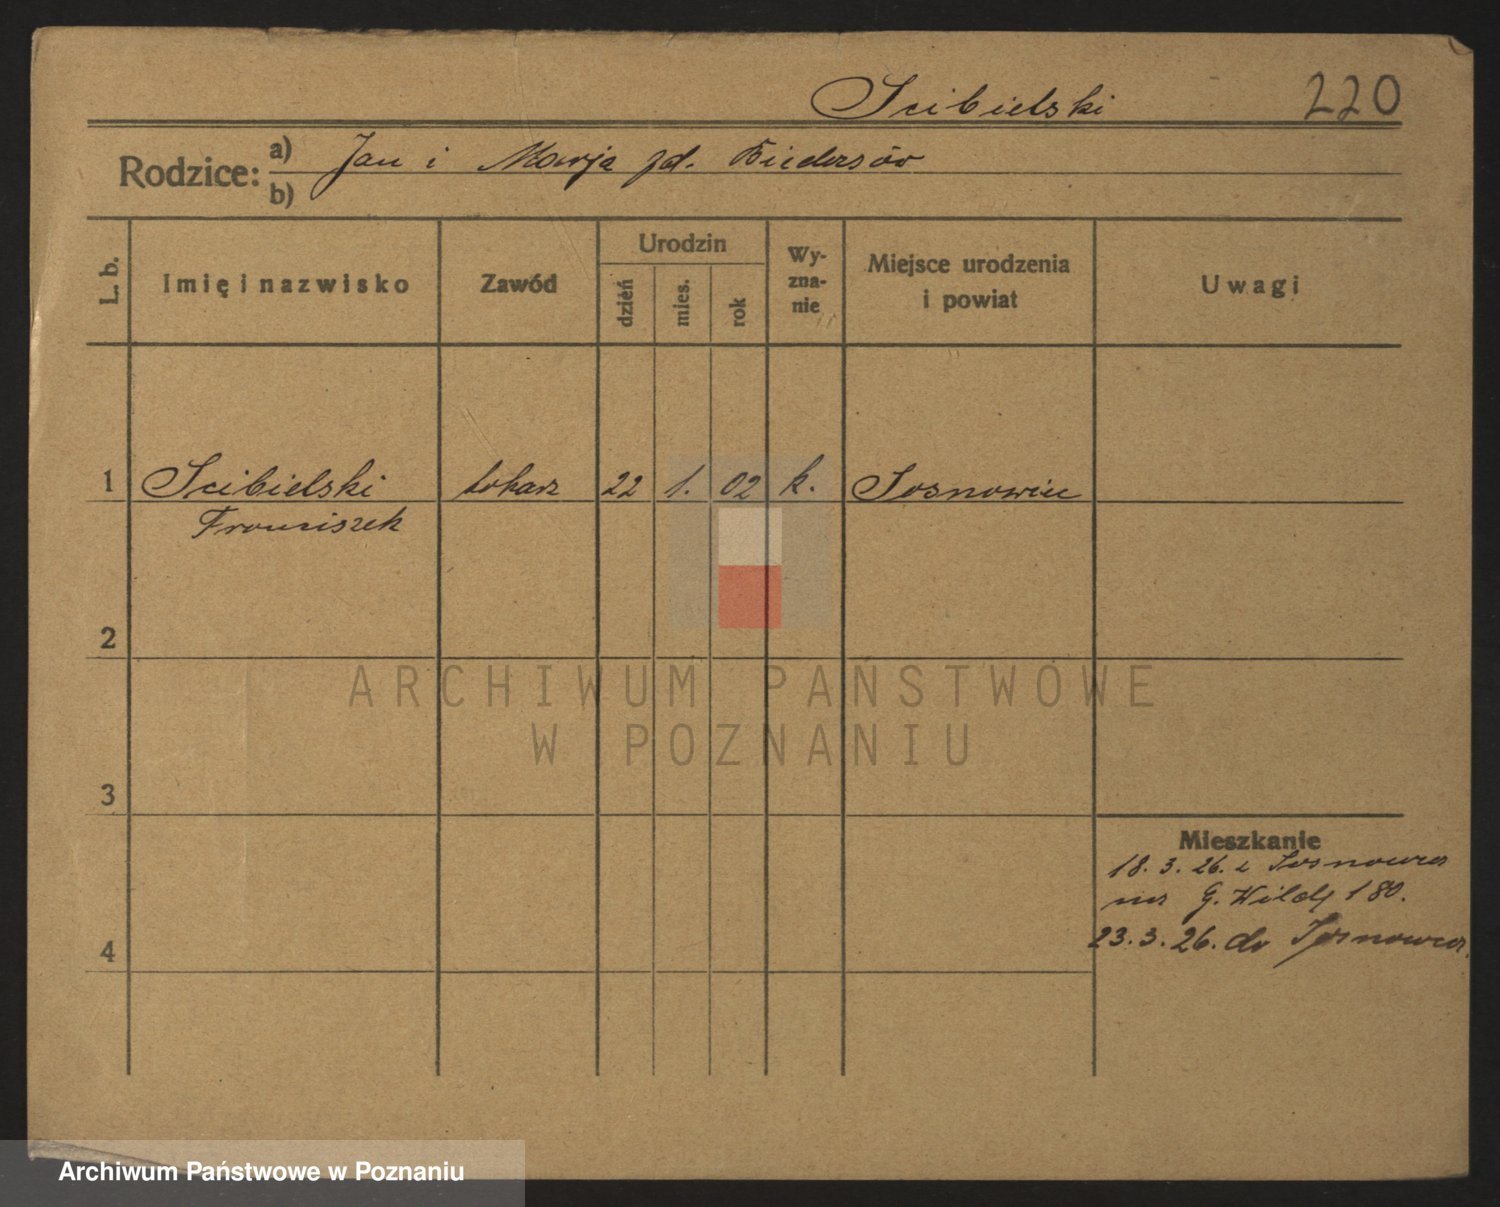 Scibielski 220
Rodzice: a) Jan i Marja zd.
b)
L. b. Imię i nazwisko Zawód Urodzin dzień mies. rok Wy-zna-nie Miejsce urodzenia i powiat Uwagi
1 Scibielski tokarz 22 1. 02 k. Sosnowiec
Franciszek
2
ARCHIWUM PAŃSTWOWE
W POZNANIU
3
Mieszkanie
18. 3. 26. z Sosnowca
na G. Wildę 180.
4 23. 3. 26. do Sosnowca
Archiwum Państwowe w Poznaniu